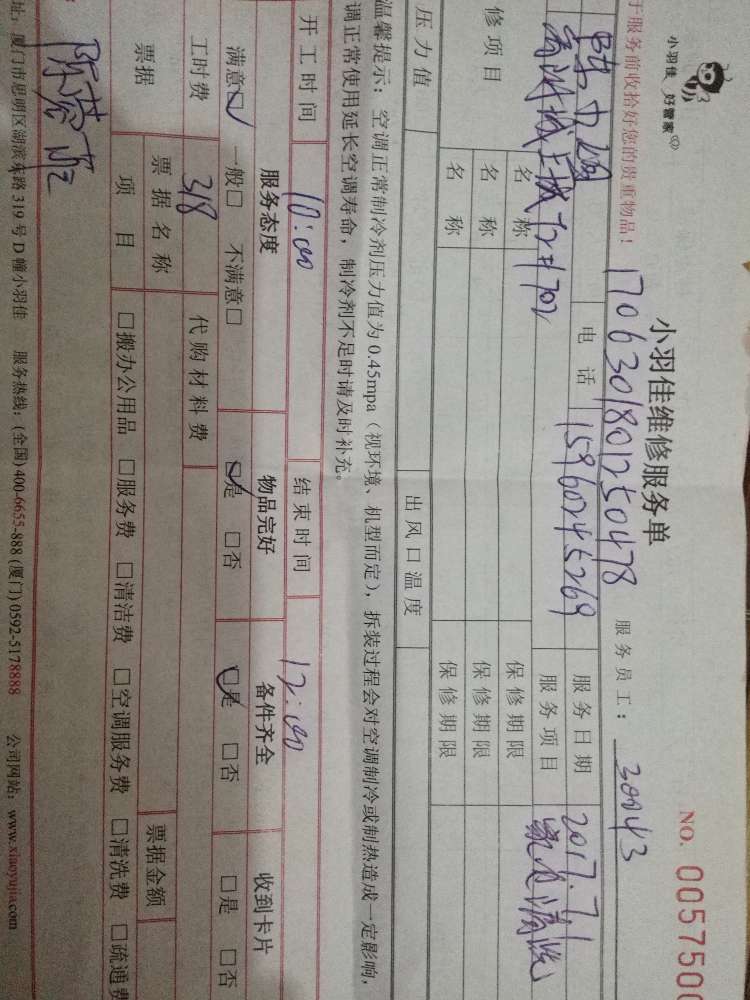 小羽佳 好管家
于服务前收拾好您的贵重物品！
小羽佳维修服务单
NO. 0057500
170630180125 0478
服务员工： 30043
电话 15960245269 服务日期 2017.7.1
702 服务项目 家电清洗
修项目 名称 保修期限
名称 保修期限
名称 保修期限
压力值 出风口温度
温馨提示：空调正常制冷剂压力值为 0.45mpa（视环境、机型而定），拆装过程会对空调制冷或制热造成一定影响，
调正常使用延长空调寿命，制冷剂不足时请及时补充。
开工时间 10:00 结束时间 12:00
服务态度 物品完好 备件齐全 收到卡片
满意□ 一般□ 不满意□ □是 □否 □是 □否 □是 □否
工时费 318 代购材料费
票据 票据名称 票据金额
项目 □搬办公用品 □服务费 □清洁费 □空调服务费 □清洗费 □疏通费
址：厦门市思明区湖滨东路 319 号 D 幢小羽佳 服务热线：(全国)400-6655-888 (厦门)0592-5178888 公司网站：www.xiaoyujia.com